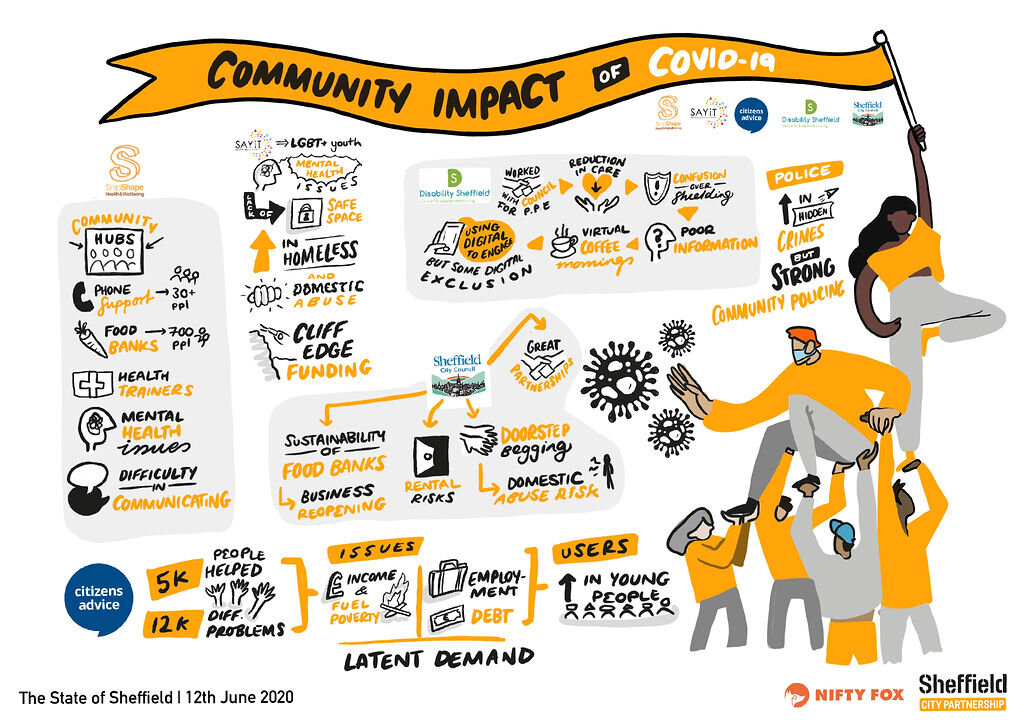 COMMUNITY IMPACT OF COVID-19
ShipShape
Health&Wellbeing
SAYiT
citizens
advice
Disability Sheffield
Sheffield
City Council
ShipShape
Health&Wellbeing
COMMUNITY
HUBS
PHONE
Support → 30+
ppl
FOOD
BANKS → 700
ppl
HEALTH
TRAINERS
MENTAL
HEALTH
issues
DIFFICULTY
IN
COMMUNICATING
SAYiT ⇒ LGBT+ youth
MENTAL
HEALTH
ISSUES
LACK
OF
SAFE
SPACE
IN
HOMELESS
AND
DOMESTIC
ABUSE
CLIFF
EDGE
FUNDING
Disability Sheffield
Centre for Independent Living
WORKED
WITH COUNCIL
FOR P.P.E
REDUCTION
IN CARE
CONFUSION
OVER
Shielding
POOR
INFORMATION
VIRTUAL
COFFEE
mornings
USING
DIGITAL
TO ENGAGE
BUT SOME DIGITAL
EXCLUSION
POLICE
IN
HIDDEN
CRIMES
BUT
STRONG
COMMUNITY POLICING
Sheffield
City Council
GREAT
PARTNERSHIPS
SUSTAINABILITY
OF
FOOD BANKS
BUSINESS
REOPENING
RENTAL
RISKS
DOORSTEP
begging
DOMESTIC
ABUSE RISK
citizens
advice
5K
PEOPLE
HELPED
12K
DIFF.
PROBLEMS
ISSUES
£ INCOME
&
FUEL
POVERTY
EMPLOY-
MENT
DEBT
LATENT DEMAND
USERS
IN YOUNG
PEOPLE
The State of Sheffield | 12th June 2020
NIFTY FOX
Sheffield
CITY PARTNERSHIP